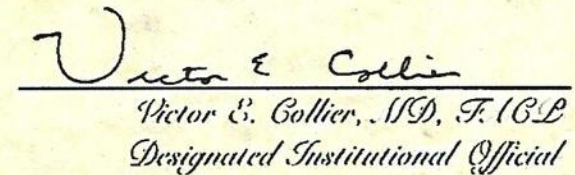 Victor E Collier
Victor E. Collier, MD, FACP
Designated Institutional Official